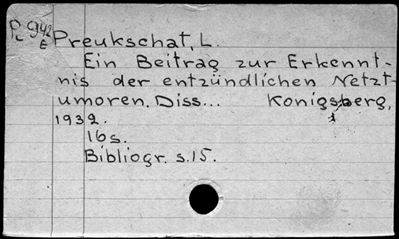 Pc 942
E
Preukschat, L.
Ein Beitrag zur Erkennt-
nis der entzündlichen Netzt-
umoren. Diss... Konigsberg,
1932.
16s.
Bibliogr. s.15.